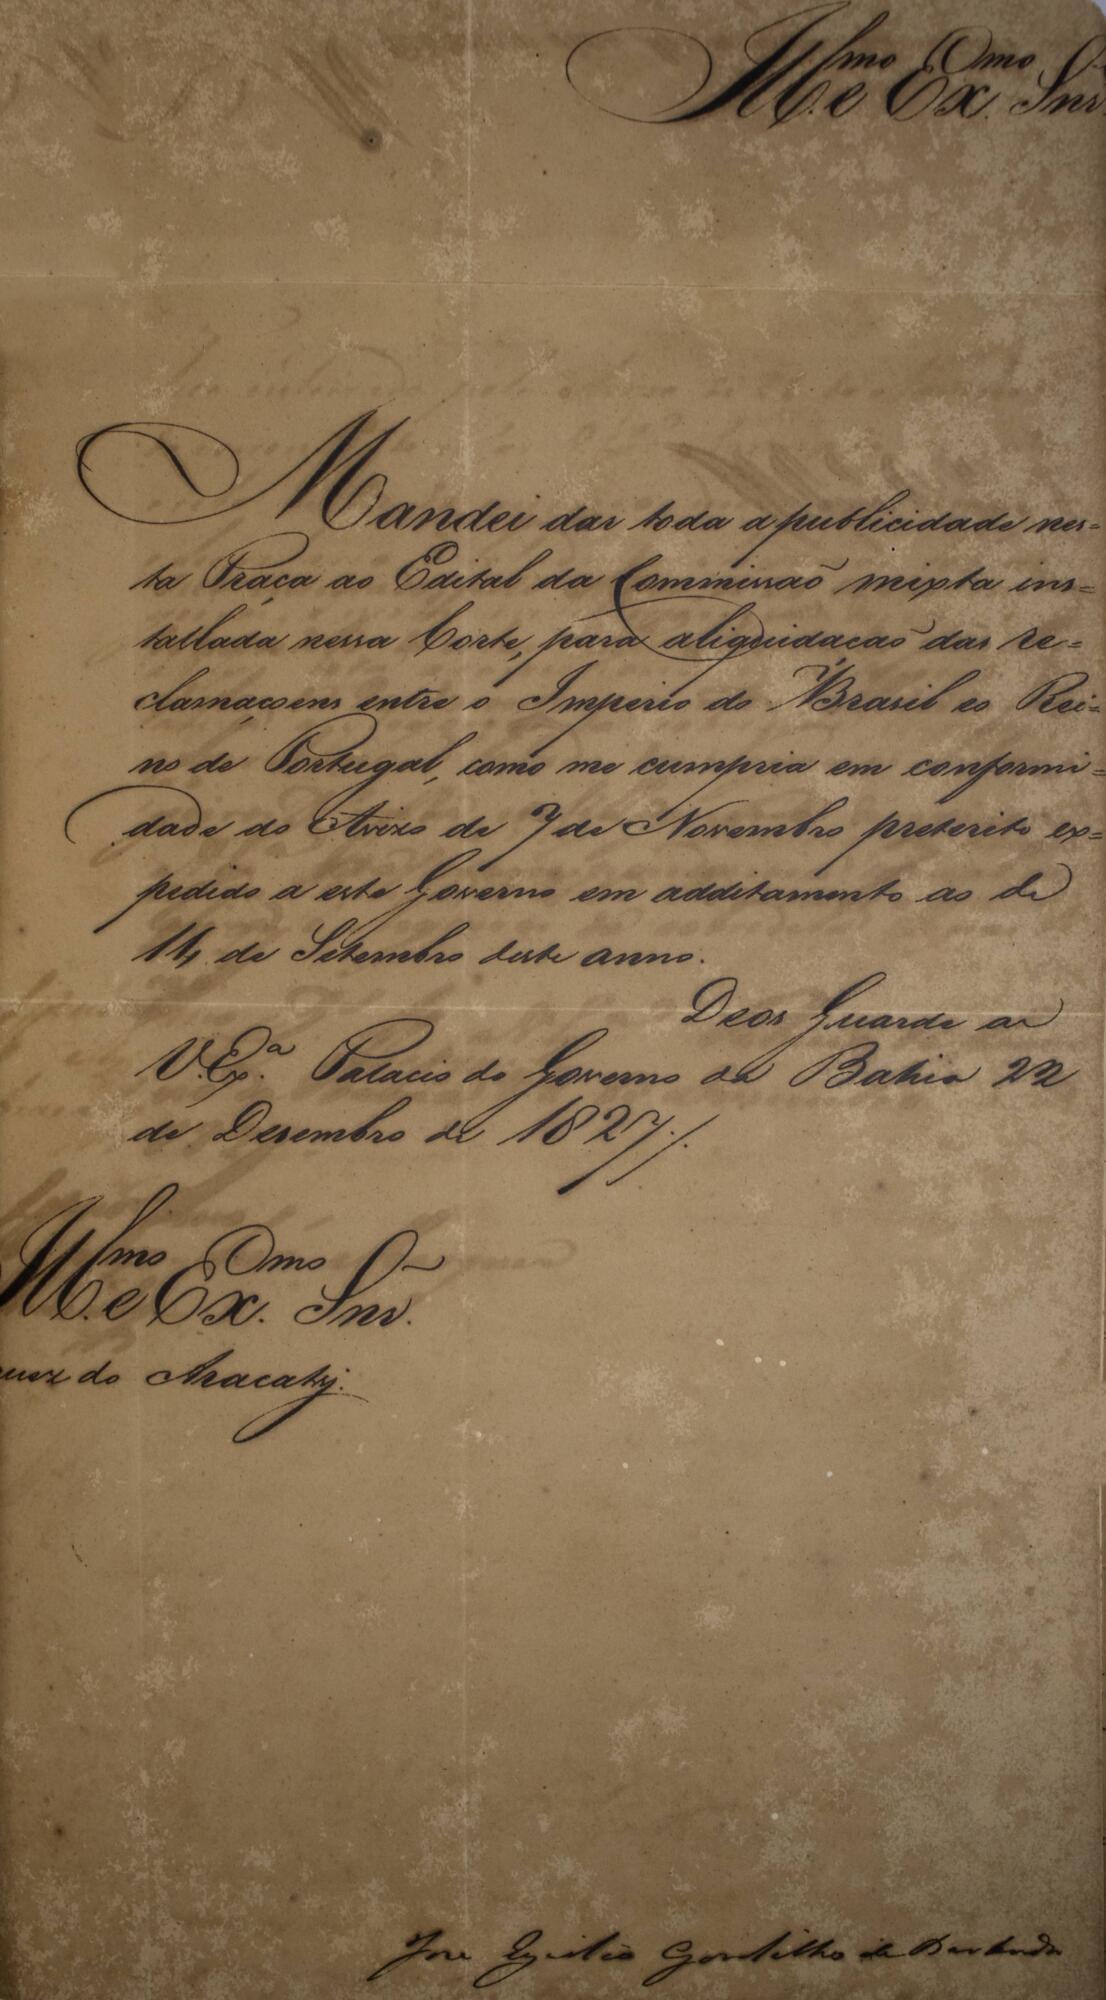 Ill.mo e Ex.mo Snr.
Mandei dar toda a publicidade nes=
ta Praça ao Edital da Commissaõ mixta ins=
tallada nessa Corte, para aliquidacaõ das re=
clamaçoens entre o Imperio do Brasil eo Rei=
no de Portugal, como me cumpria em conformi=
dade do Avizo de 7 de Novembro preterito ex=
pedido a este Governo em additamento ao de
14 de Setembro deste anno.
Deos Guarde a
V. Ex.ª Palacio do Governo da Bahia 22
de Desembro de 1827./.
Ill.mo e Ex.mo Snr.
quez do Aracaty.
Joze Egidio Gordilho de Barbuda